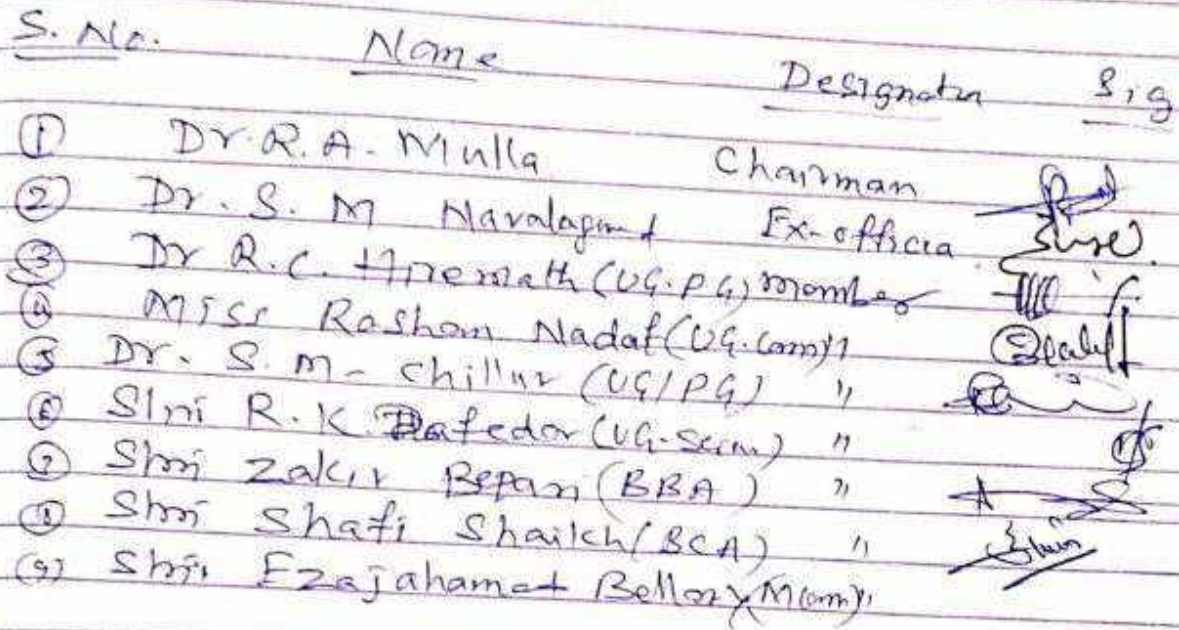 S. No. Name Designation Sig
① Dr. R. A. Mulla Chairman
② Dr. S. M Navalagund Ex-officia
③ Dr R. C. Hiremath (UG.PG) member
④ Miss Rashom Nadaf (UG.Com) "
⑤ Dr. S. M. Chillur (UG/PG) "
⑥ Shri R. K. Dafedar (UG- "
⑦ Shri Zakir Bepari (BBA) "
⑧ Shri Shafi Shaikh (BCA) "
(9) Shri Ezajahamat Bellary (Mcom) "